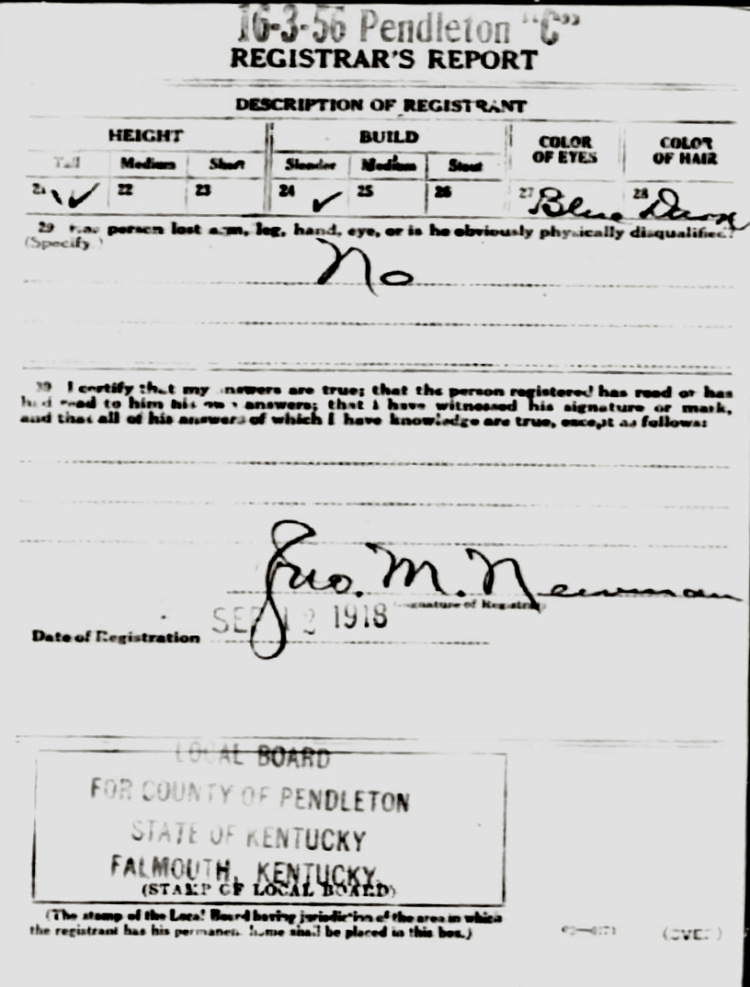 16-3-56 Pendleton "C"
REGISTRAR'S REPORT
DESCRIPTION OF REGISTRANT
HEIGHT BUILD COLOR OF EYES COLOR OF HAIR
Tall Medium Short Slender Medium Stout
21 ✓ 22 23 24 ✓ 25 26 27 Blue 28
29 Has person lost arm, leg, hand, eye, or is he obviously physically disqualified?
(Specify.)
No
30 I certify that my answers are true; that the person registered has read or has
had read to him his own answers; that I have witnessed his signature or mark,
and that all of his answers of which I have knowledge are true, except as follows:
Jno. M. Newman
(Signature of Registrar)
Date of Registration SEP 12 1918
LOCAL BOARD
FOR COUNTY OF PENDLETON
STATE OF KENTUCKY
FALMOUTH, KENTUCKY.
(STAMP OF LOCAL BOARD)
(The stamp of the Local Board having jurisdiction of the area in which
the registrant has his permanent home shall be placed in this box.)
(OVER)